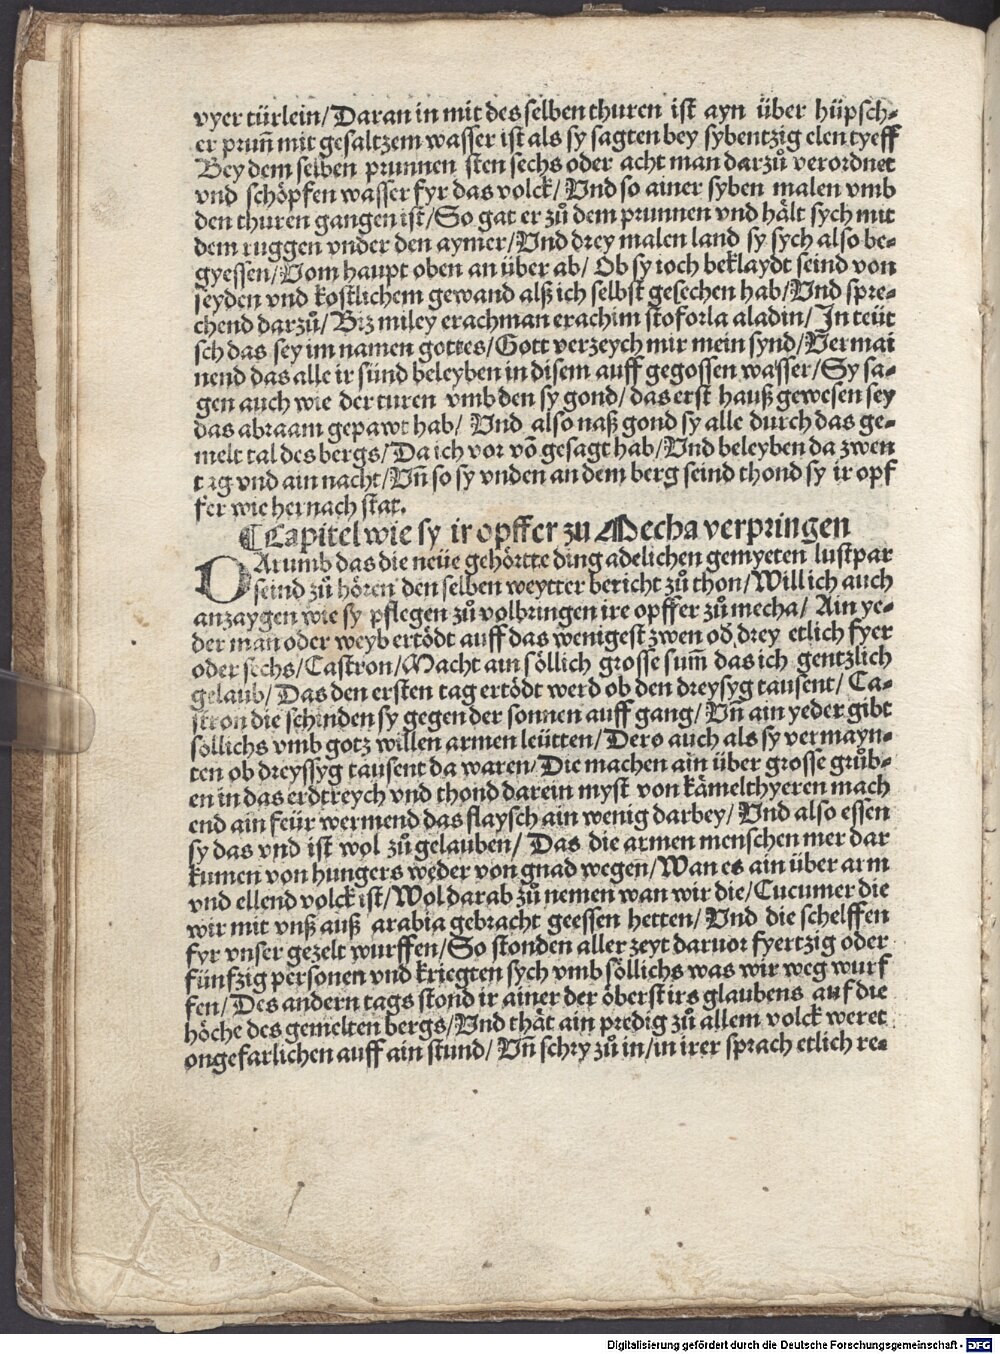 vyer türlein/Daran in mit des selben thuren ist ayn über hüpsch⸗
er prun̄ mit gesaltzem wasser ist als sy sagten bey sybentzig elen tyeff
Bey dem selben prunnen sten sechs oder acht man darzů verordnet
vnd schöpfen wasser fyr das volck/Vnd so ainer syben malen vmb
den thuren gangen ist/So gat er zů dem prunnen vnd hält sych mit
dem ruggen vnder den aymer/Vnd drey malen land sy sych also be⸗
gyessen/Vom haupt oben an über ab/ Ob sy ioch beklaydt seind von
seyden vnd kostlichem gewand alß ich selbst gesechen hab/Vnd spre⸗
chend darzů/Biz miley erachman erachim stoforla aladin/In teüt
sch das sey im namen gottes/Gott verzeych mir mein synd/Vermai
nend das alle ir sünd beleyben in disem auff gegossen wasser/Sy sa⸗
gen auch wie der turen vmb den sy gond/das erst hauß gewesen sey
das abraam gepawt hab/ Vnd also naß gond sy alle durch das ge⸗
melt tal des bergs/Da ich vor võ gesagt hab/Vnd beleyben da zwen
tag vnd ain nacht/Vn̄ so sy vnden an dem berg seind thond sy ir opf
fer wie hernach stat.
⸿Capitel wie sy ir opffer zu Mecha verpringen
DArumb das die neüe gehörtte ding adelichen gemyeten lustpar
seind zů hören den selben weytter bericht zů thon/Will ich auch
anzaygen wie sy pflegen zů volbringen ire opffer zů mecha/ Ain ye⸗
der man oder weyb ertödt auff das wenigest zwen od̕ drey etlich fyer
oder sechs/Castron/Macht ain söllich grosse sum̄ das ich gentzlich
gelaub/Das den ersten tag ertödt werd ob den dreysyg tausent/ Ca⸗
stron die schinden sy gegen der sonnen auff gang/Vn̄ ain yeder gibt
söllichs vmb gotz willen armen leütten/Dero auch als sy vermayn⸗
ten ob dreyssyg tausent da waren/Die machen ain über grosse grůb⸗
en in das erdtreych vnd thond darein myst von kämelthyeren mach
end ain feür wermend das flaysch ain wenig darbey/Vnd also essen
sy das vnd ist wol zů gelauben/ Das die armen menschen mer dar
kumen von hungers weder von gnad wegen/Wan es ain über arm
vnd ellend volck ist/Wol darab zů nemen wan wir die/Cucumer die
wir mit vnß auß arabia gebracht geessen hetten/Vnd die schelffen
fyr vnser gezelt wurffen/So stonden aller zeyt daruor fyertzig oder
fünfzig personen vnd kriegten sych vmb söllichs was wir weg wurf
fen/Des andern tags stond ir ainer der öberst irs glaubens auf die
höche des gemelten bergs/Vnd thät ain predig zů allem volck weret
ongefarlichen auff ain stund/Vn̄ schry zů in/in irer sprach etlich re⸗
Digitalisierung gefördert durch die Deutsche Forschungsgemeinschaft - DFG